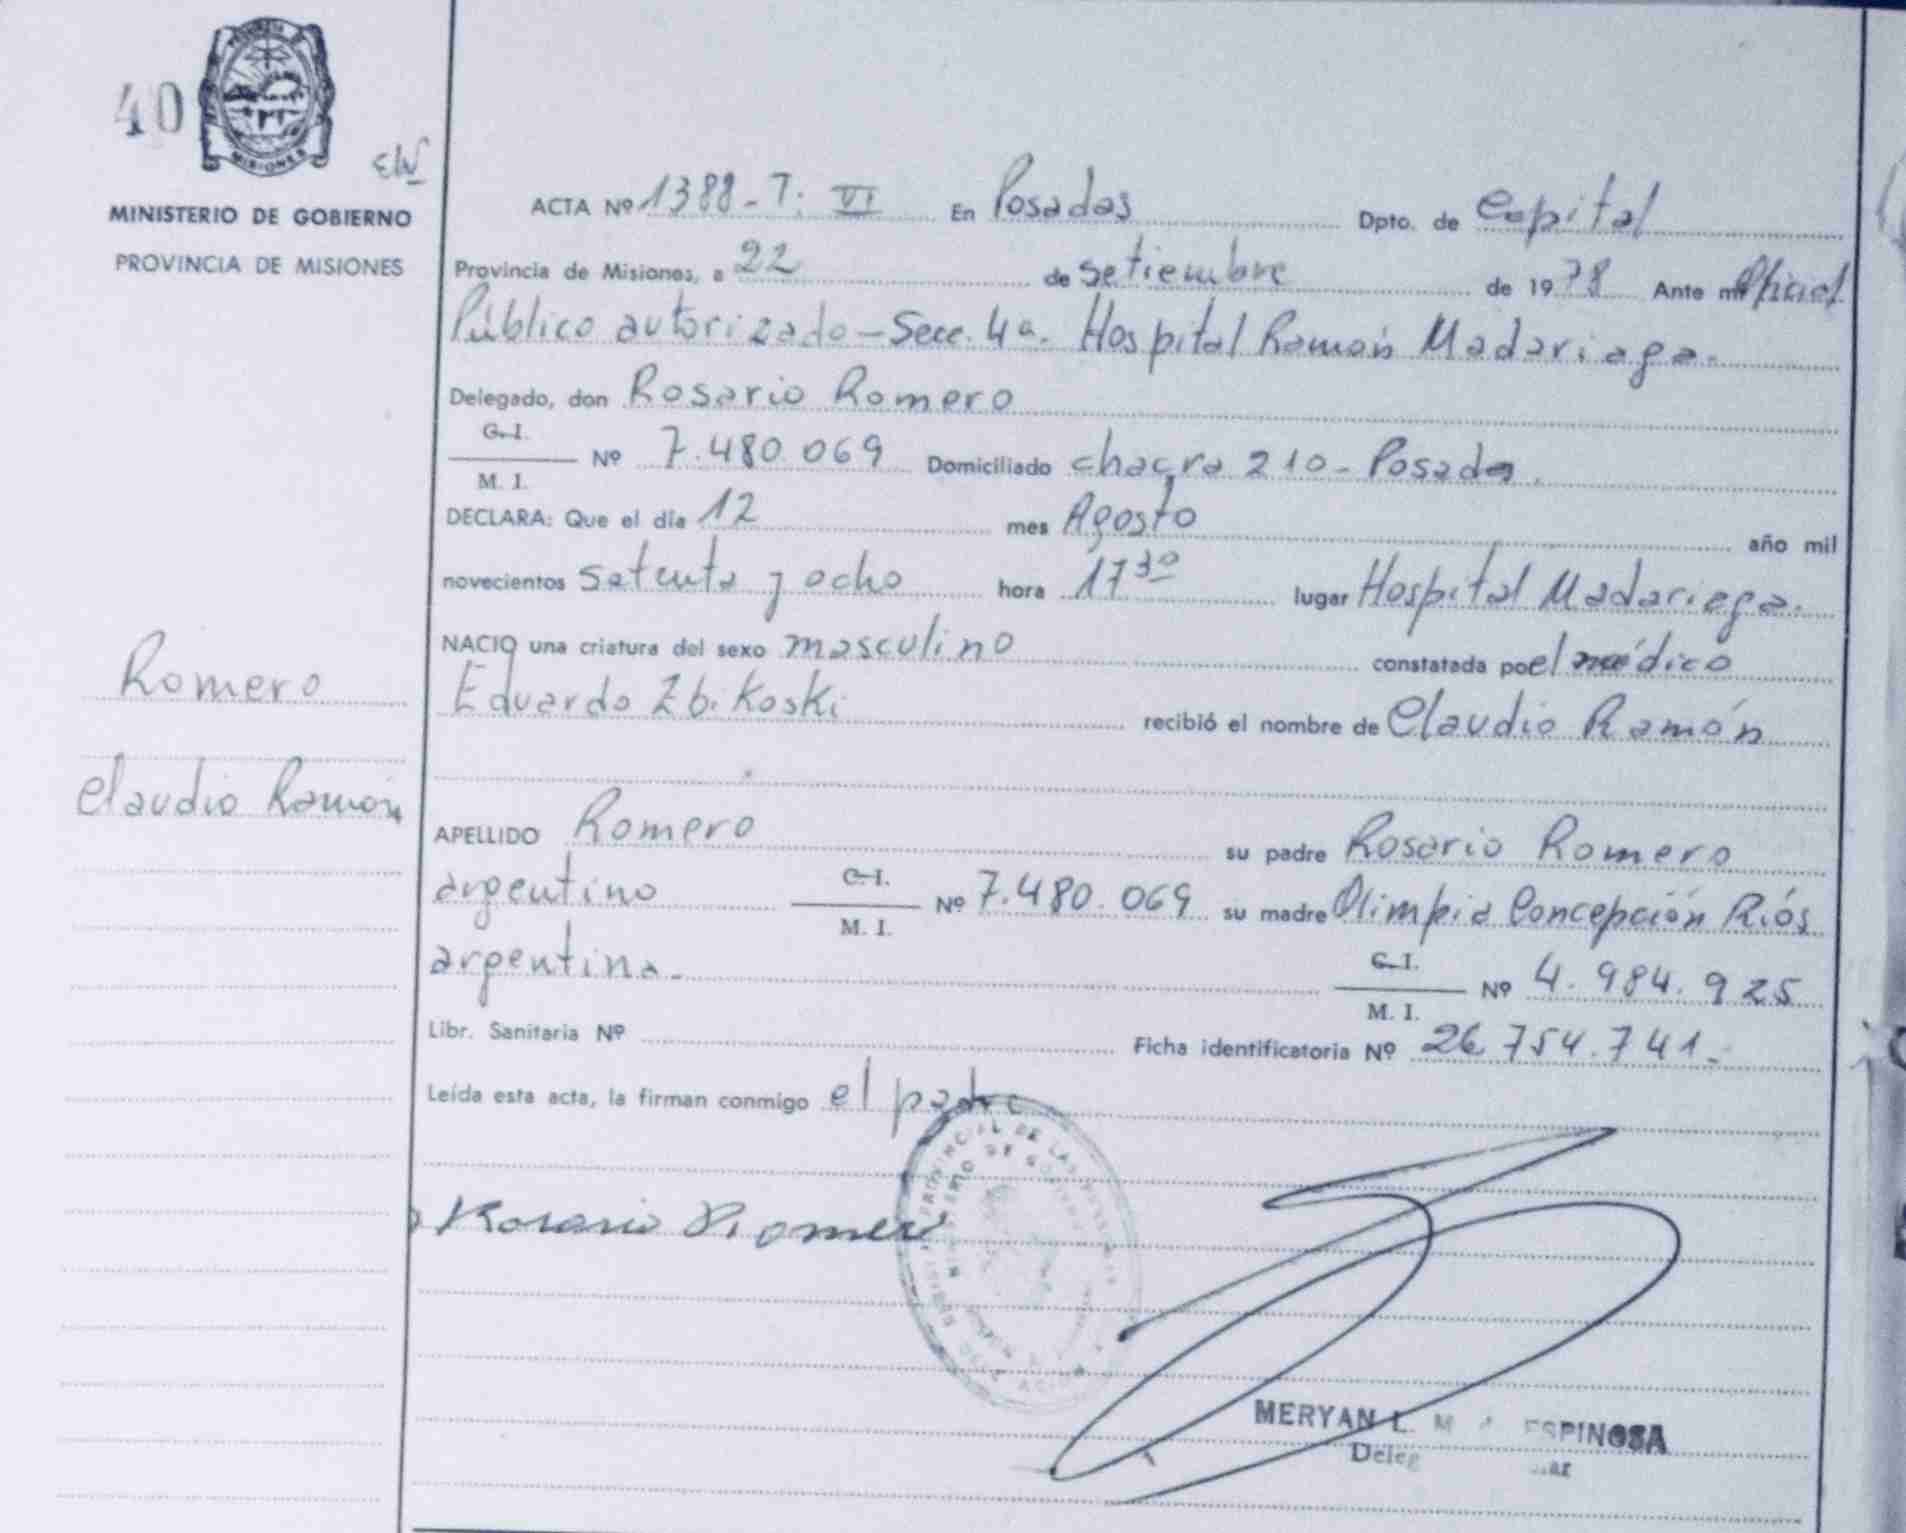 40
MISIONES
EW
MINISTERIO DE GOBIERNO
PROVINCIA DE MISIONES
Romero
Claudio Ramón
ACTA Nº 1388 - T. VI En Posadas Dpto. de Capital
Provincia de Misiones, a 22 de setiembre de 1978 Ante mí Oficial
Público autorizado - Secc. 4a. Hospital Ramón Madariaga.
Delegado, don Rosario Romero
C. I.
Nº 7.480.069 Domiciliado chacra 210 - Posadas.
M. I.
DECLARA: Que el día 12 mes Agosto año mil
novecientos setenta y ocho hora 17 30 lugar Hospital Madariaga.
NACIO una criatura del sexo masculino constatada por el médico
Eduardo Zbikoski recibió el nombre de Claudio Ramón
APELLIDO Romero su padre Rosario Romero
argentino C. I. Nº 7.480.069 su madre Olimpia Concepción Ríós
M. I.
argentina. C. I. Nº 4.984.925
M. I.
Libr. Sanitaria Nº Ficha identificatoria Nº 26.754.741.-
Leída esta acta, la firman conmigo el padre
Rosario Romero
PROVINCIAL DE LAS PERSONAS
MINISTERIO DE GOBIERNO
MERYAN L. ESPINOSA